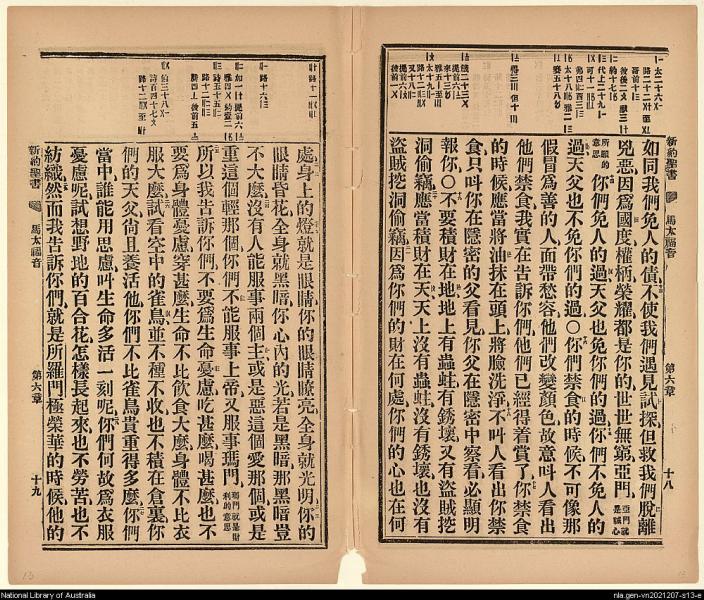 如同我們免人的債不使我們遇見試探但救我們脫離
兇惡因爲國度權柄榮耀都是你的世世無窮亞門亞門就是誠心
所願的意思你們免人的過天父也免你們的過你們不免人的
過天父也不免你們的過〇你們禁食的時候不可像那
假冒爲善的人面帶愁容他們改變顏色故意叫人看出
他們禁食我實在告訴你們他們已經得着賞了你禁食
的時候應當將油抹在頭上將臉洗淨不叫人看出你禁
食只叫你在隱密的父看見你父在隱密中察看必顯明
報你〇不要積財在地地上有蟲蛀有銹壞又有盜賊挖
洞偷竊應當積財在天天上沒有蟲蛀沒有銹壞也沒有
盜賊挖洞偷竊因爲你們的財在何處你們的心也在何
新約聖書 馬太福音 第六章 十八
處身上的燈就是眼睛你的眼睛瞭亮全身就光明你的
眼睛昏花全身就黑暗你心內的光若是黑暗那黑暗豈
不大麼沒有人能服事兩個主或是惡這個愛那個或是
重這個輕那個你們不能服事上帝又服事瑪門瑪門就是財利的意思
所以我告訴你們不要爲生命憂慮吃甚麼喝甚麼也不
要爲身體憂慮穿甚麼生命不比飲食大麼身體不比衣
服大麼試看空中的雀鳥並不種不收也不積在倉裏你
們的天父尙且養活他你們不比雀鳥貴重得多麼你們
當中誰能用思慮叫生命多活一刻呢你們何故爲衣服
憂慮呢試想野地的百合花怎樣長起來也不勞苦也不
紡織然而我告訴你們就是所羅門極榮華的時候他的
新約聖書 馬太福音 第六章 十九
National Library of Australia
nla.gen-vn2021207-s13-e